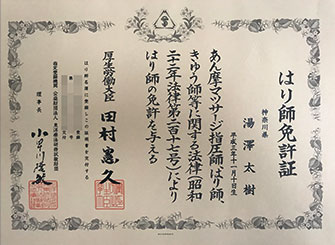 はり師免許証
神奈川県
湯澤太樹
平成三年十一月十日生
あん摩マツサージ指圧師、はり師、
きゆう師等に関する法律(昭和
二十二年法律第二百十七号)により
はり師の免許を与える
厚生労働大臣
田村憲久
はり師名簿に登録しこの免許証を交付する
理事長